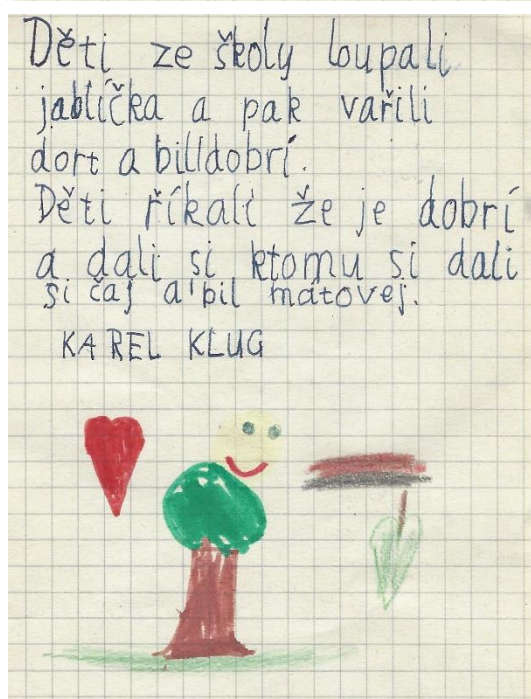 Děti ze školy loupali
jablíčka a pak vařili
dort a billdobrí.
Děti říkalí že je dobrí
a dali si ktomu si dali
si čaj a bil mátovej.
KAREL KLUG